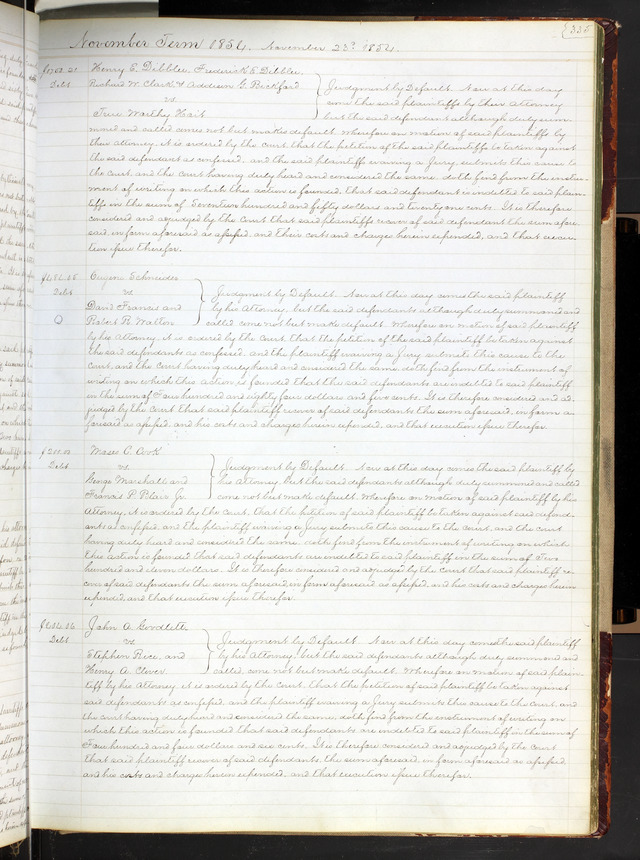 335
November Term 1854. November 23d 1854.
$750.21 Henry E. Dibblee, Frederick E. Dibblee,
Debt Richard W. Clark & Addison G. Bickford
vs
True Worthy Hoit
Judgment by Default. Now at this day
come the said plaintiffs by their Attorney
but the said defendant although duly sum-
moned and called comes not but makes default. Wherefore on motion of said plaintiffs by
their attorney, it is ordered by the court that the petition of the said plaintiffs be taken against
the said defendant as confessed, and the said plaintiff waiving a Jury submits this cause to
the court and the court having duly heard and considered the same, doth find from the instru-
ment of writing on which this action is founded, that said defendant is indebted to said plain-
tiffs in the sum of Seven hundred and fifty dollars and twenty one cents. It is therefore
considered and adjudged by the Court that said plaintiffs recover of said defendant the sum afore-
said, in form aforesaid as assessed, and their costs and charges herein expended, and that execu-
tion issue therefor.
$484.05 Eugene Schneider
Debt vs
David Francis and
Robert R. Walton
Judgment by Default. Now at this day comes the said plaintiff
by his Attorney, but the said defendants although duly summoned and
called come not but make default. Wherefore on motion of said plaintiff
by his Attorney, it is ordered by the court that the petition of the said plaintiff be taken against
the said defendants as confessed, and the plaintiff waiving a Jury submits this cause to the
Court, and the court having duly heard and considered the same doth find from the instrument of
writing on which this action is founded that the said defendants are indebted to said plaintiff
in the sum of Four hundred and eighty four dollars and five cents. It is therefore considered and ad-
judged by the Court that said plaintiff recover of said defendants the sum aforesaid, in form a-
foresaid as assessed, and his costs and charges herein expended, and that execution issue therefor.
Moses C. Cook
Debt vs.
George Marshall and
Francis P. Blair Jr.
Judgment by Default. Now at this day comes the said plaintiff by
his Attorney, but the said defendants although duly summoned and called
come not but make default. Wherefore on motion of said plaintiff by his
Attorney, it is ordered by the court, that the petition of said plaintiff be taken against said defend-
ants as confessed, and the plaintiff waiving a Jury submits this cause to the Court, and the court
having duly heard and considered the same doth find from the instrument of writing on which
this action is founded that said defendants are indebted to said plaintiff in the sum of Two
hundred and eleven dollars. It is therefore considered and adjudged by the Court that said plaintiff re-
cover of said defendants the sum aforesaid, in form aforesaid as assessed, and his costs and charges herein
expended, and that execution issue therefor.
$404.06 John A. Goodlett
Debt vs
Stephen Rice, and
Henry A. Clover
Judgment by Default. Now at this day comes the said plaintiff
by his Attorney, but the said defendants although duly summoned and
called, come not but make default. Wherefore on motion of said plain-
tiff by his Attorney it is ordered by the court, that the petition of said plaintiff be taken against
said defendants as confessed, and the plaintiff waiving a Jury submits this cause to the Court, and
the court having duly heard and considered the same, doth find from the instrument of writing on
which this action is founded that said defendants are indebted to said plaintiff in the sum of
Four hundred and four dollars and six cents. It is therefore considered and adjudged by the Court
that said plaintiff recover of said defendants, the sum aforesaid, in form aforesaid as assessed,
and his costs and charges herein expended, and that execution issue therefor.